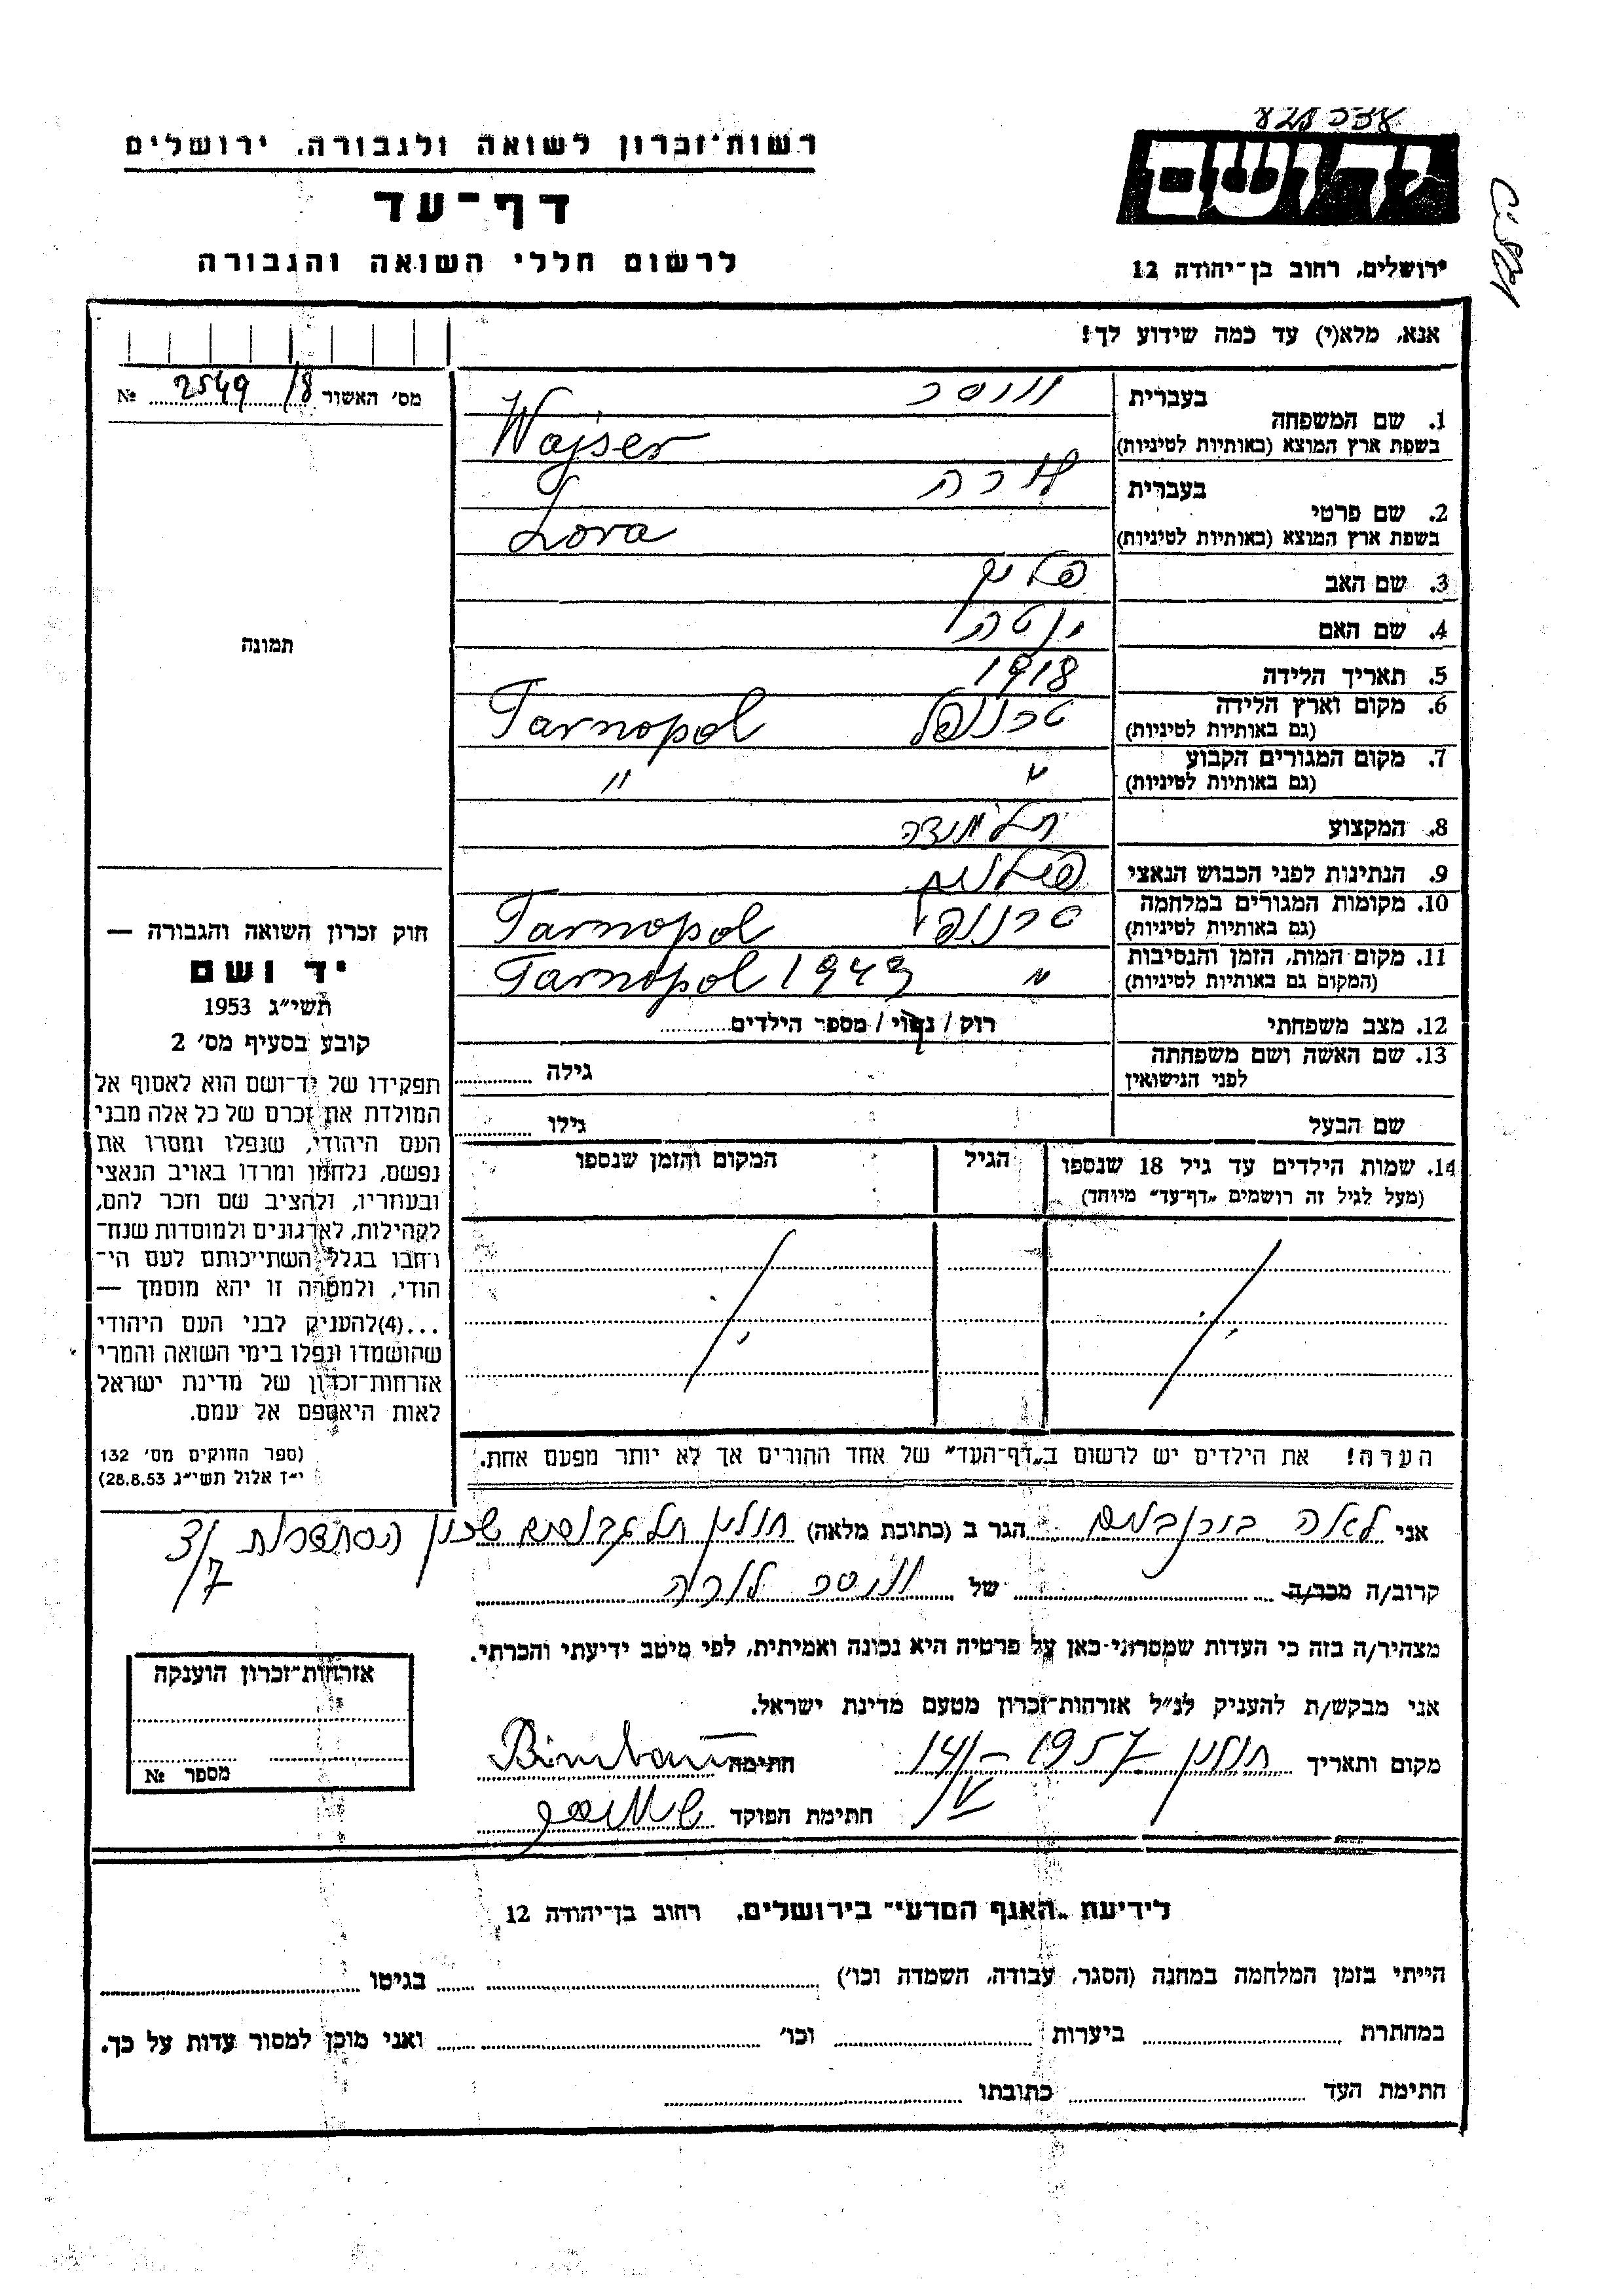 רשות־זכרון לשואה ולגבורה, ירושלים
דף־עד
לרשום חללי השואה והגבורה
יד ושם
ירושלים, רחוב בן־יהודה 12
אנא, מלא(י) עד כמה שידוע לך!
מס׳ האשור 2549/8 №
1. שם המשפחה
בעברית וויסר
בשפת ארץ המוצא (באותיות לטיניות) Wajser
2. שם פרטי
בעברית לורה
בשפת ארץ המוצא (באותיות לטיניות) Lora
3. שם האב
4. שם האם יטה
5. תאריך הלידה 1918
6. מקום וארץ הלידה טרנופל Tarnopol
(גם באותיות לטיניות)
7. מקום המגורים הקבוע " "
(גם באותיות לטיניות)
8. המקצוע תלמידה
9. הנתינות לפני הכבוש הנאצי
10. מקומות המגורים במלחמה טרנופל Tarnopol
(גם באותיות לטיניות)
11. מקום המות, הזמן והנסיבות " Tarnopol 1943
(המקום גם באותיות לטיניות)
12. מצב משפחתי רוק / נשוי / מספר הילדים
13. שם האשה ושם משפחתה
לפני הנישואין גילה
שם הבעל גילו
14. שמות הילדים עד גיל 18 שנספו הגיל המקום והזמן שנספו
(מעל לגיל זה רושמים „דף־עד״ מיוחד)
הערה! את הילדים יש לרשום ב„דף־העד״ של אחד ההורים אך לא יותר מפעם אחת.
תמונה
חוק זכרון השואה והגבורה —
יד ושם
תשי״ג 1953
קובע בסעיף מס׳ 2
תפקידו של יד־ושם הוא לאסוף אל
המולדת את זכרם של כל אלה מבני
העם היהודי, שנפלו ומסרו את
נפשם, נלחמו ומרדו באויב הנאצי
ובעוזריו, ולהציב שם וזכר להם,
לקהילות, לארגונים ולמוסדות שנח־
רבו בגלל השתייכותם לעם הי־
הודי, ולמטרה זו יהא מוסמך —
...(4) להעניק לבני העם היהודי
שהושמדו ונפלו בימי השואה והמרי
אזרחות־זכרון של מדינת ישראל
לאות היאספם אל עמם.
(ספר החוקים מס׳ 132
י״ז אלול תשי״ג 28.8.53)
אני לאה בירנבוים הגר ב (כתובת מלאה) חולון שכון הסתדרות
קרוב/ה מכר/ה של וויסר לורה
מצהיר/ה בזה כי העדות שמסרתי כאן על פרטיה היא נכונה ואמיתית, לפי מיטב ידיעתי והכרתי.
אני מבקש/ת להעניק לנ״ל אזרחות־זכרון מטעם מדינת ישראל.
מקום ותאריך חולון 14/V – 1957 חתימה Birnbaum
חתימת הפוקד
אזרחות־זכרון הוענקה
מספר №
לידיעת „האגף המדעי״ בירושלים, רחוב בן־יהודה 12
הייתי בזמן המלחמה במחנה (הסגר, עבודה, השמדה וכו׳) בגיטו
במחתרת ביערות וכו׳ ואני מוכן למסור עדות על כך.
חתימת העד כתובתו